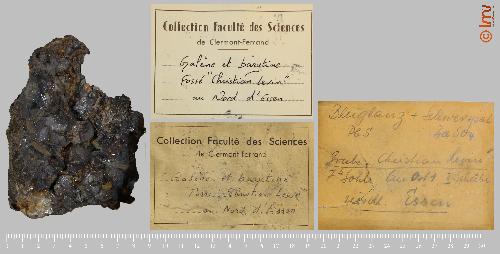 Collection Faculté des Sciences
de Clermont-Ferrand
Galène et barytine
Fosse "Christian Levin"
au Nord d'Essen
Collection Faculté des Sciences
de Clermont-Ferrand
Galène et barytine
Fosse Christian Levin
au Nord d'Essen
Bleiglanz + Schwerspat
PbS BaSO4
Grube Christian Levin
7. Sohle
Essen
lmv